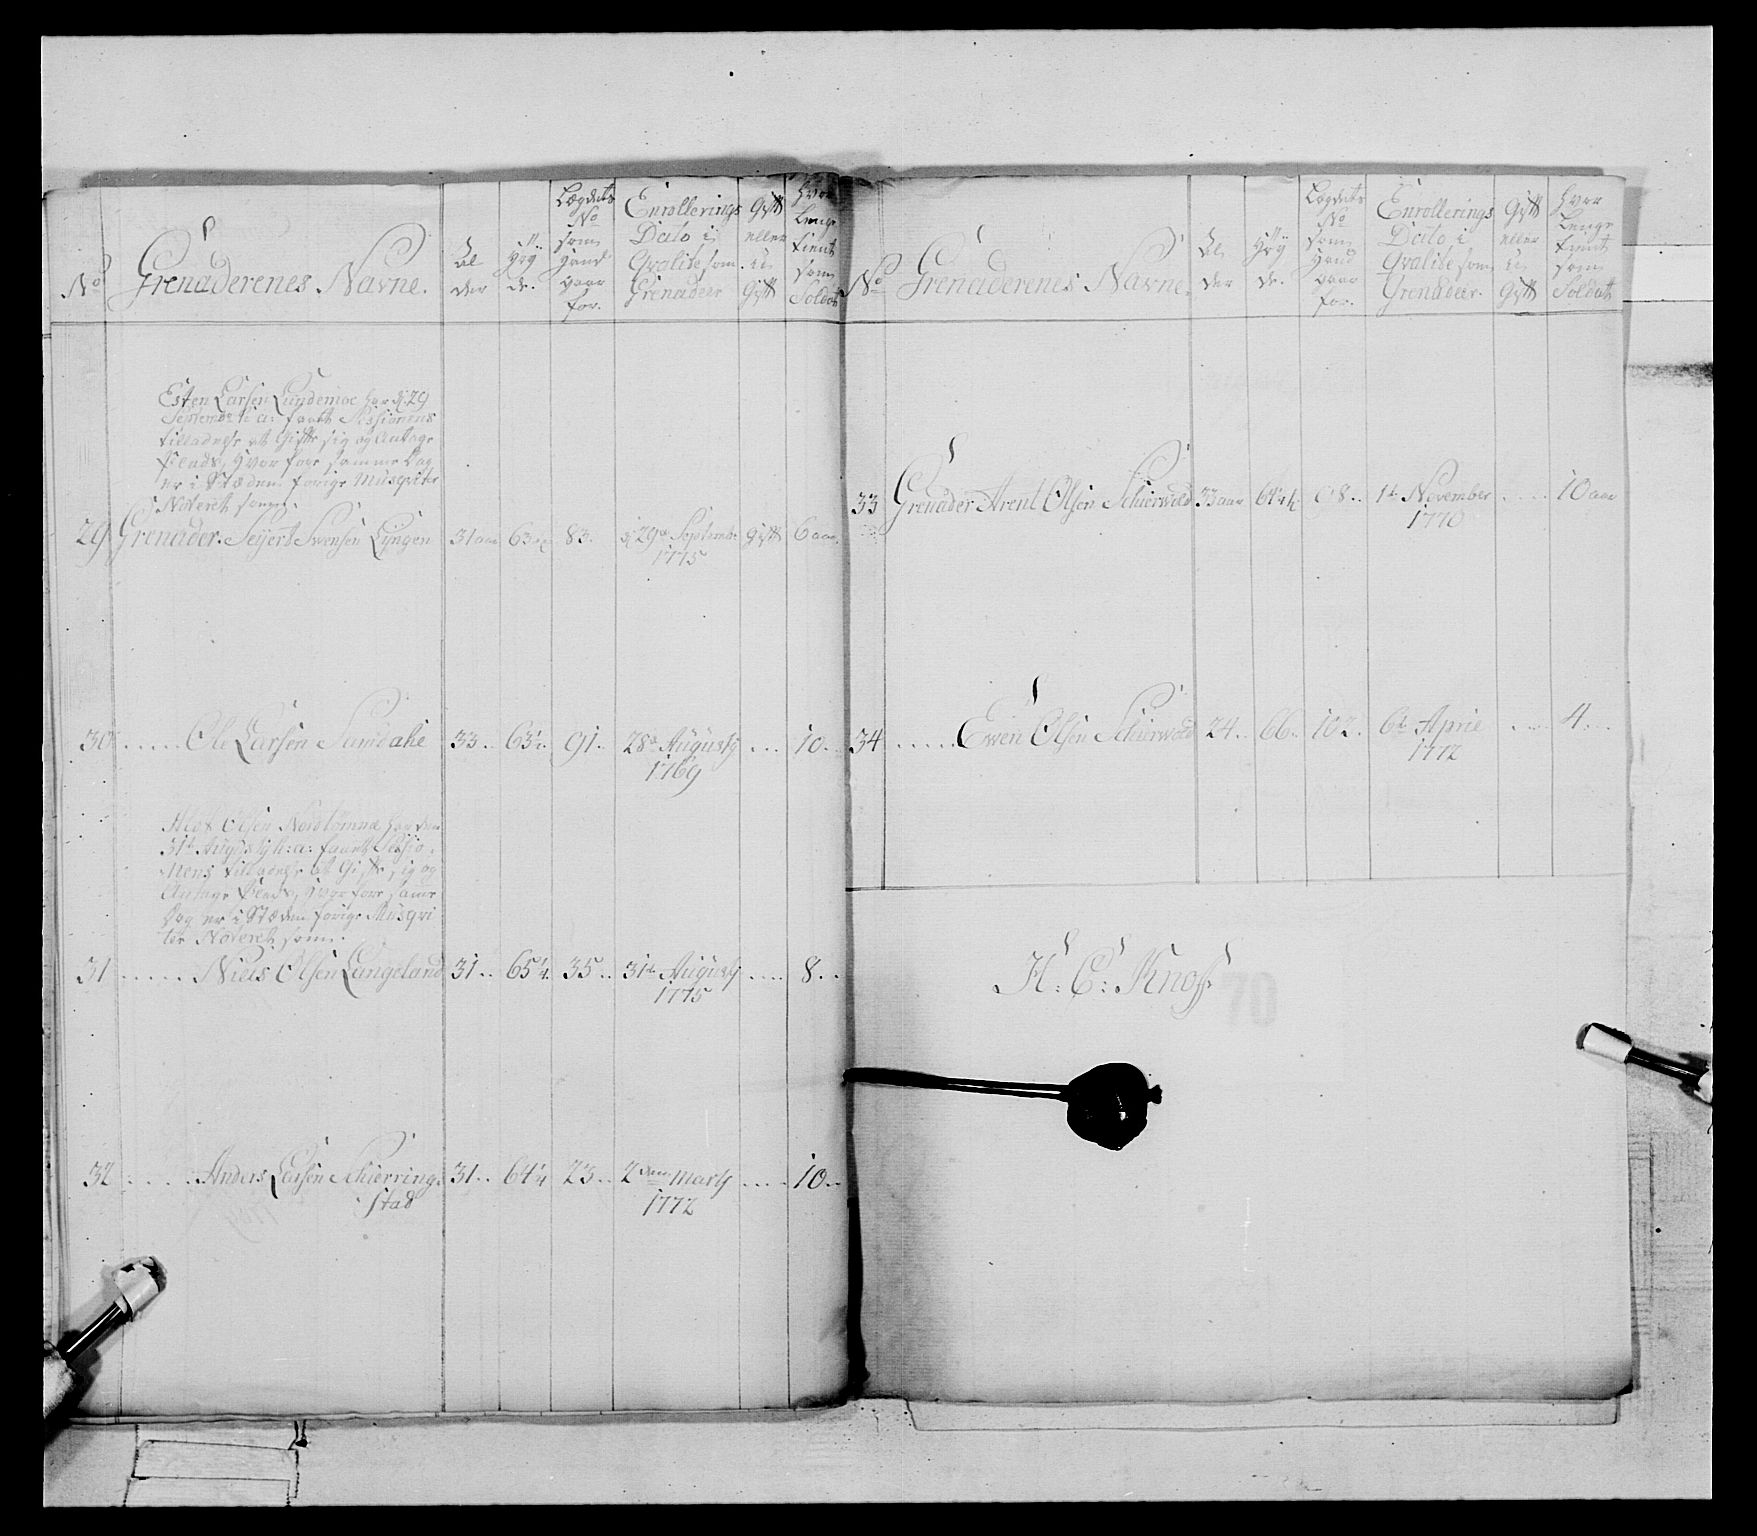 No
Grenaderenes Navne.
Al
der
Høÿ
de.
Lægdets
No
som
Hand
vaar
for.
Enrollerings
Dato i
Qvalite som
Grenadeer
Gift
eller
U
Gift
Hvor
Lenge
tient
som
Soldat
Esten Larsen Lundemoe har d: 29
Septembr h: a: faaet Sessionens
tilladelse at Gifte sig og Antage
Plads, hvor fore samme Dag
er i Stæden forige Musqvetter
Noteret som.
29 Grenader. Sejert Swensen Lÿngen 31 aar 63 83. d 29de Septembr Gift 6 aar.
1775
30 Ole Larsen Sundahe 33 63½ 91 28de Augustÿ 10
1769
Olsen har den
31te Augustÿ h: a: faaet Sessio-
nens tilladelse at Gifte sig og
Antage Plads, hvor fore same
Dag er i Stæden forige Musqve
ter Noteret som.
31 Niels Olsen Langeland 31 65½ 35 31te Augustÿ 8
1775
32 Anders Larsen Schierrings 31 64¼ 23 2den Martÿ 10
stad 1772
No
Grenaderenes Navne.
Al
der
Høÿ
de.
Lægdets
No
som
Hand
vaar
for.
Enrollerings
Dato i
Qvalite som
Grenadeer.
Gift
eller
U
Gift
Hvor
Lenge
tient
som
Soldatt
33 Grenader Arent Olsen Schierwold 33 aar 64½ 98 1te November 10 aar
1770
34 Ewen Olsen Schierwold 24 66 102 6te Aprie 4
1772
H: C: Knoff
70